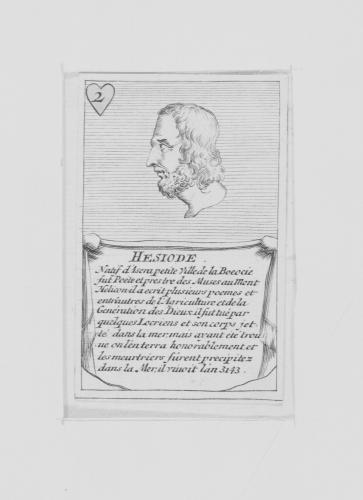 2
HESIODE.
Natif d'Ascra petite Ville de la Boeocie
fut Poete et prestre des Muses au Mont
Helicon il a ecrit plusieurs poemes et
entr'autres de l'Agriculture et de la
Generation des Dieux il fut tué par
quelques Locriens et son corps jet-
té dans la mer, mais ayant été trou
ué on l'enterra honorablement et
les meurtriers furent precipitez
dans la Mer, il viuoit l'an 3143.